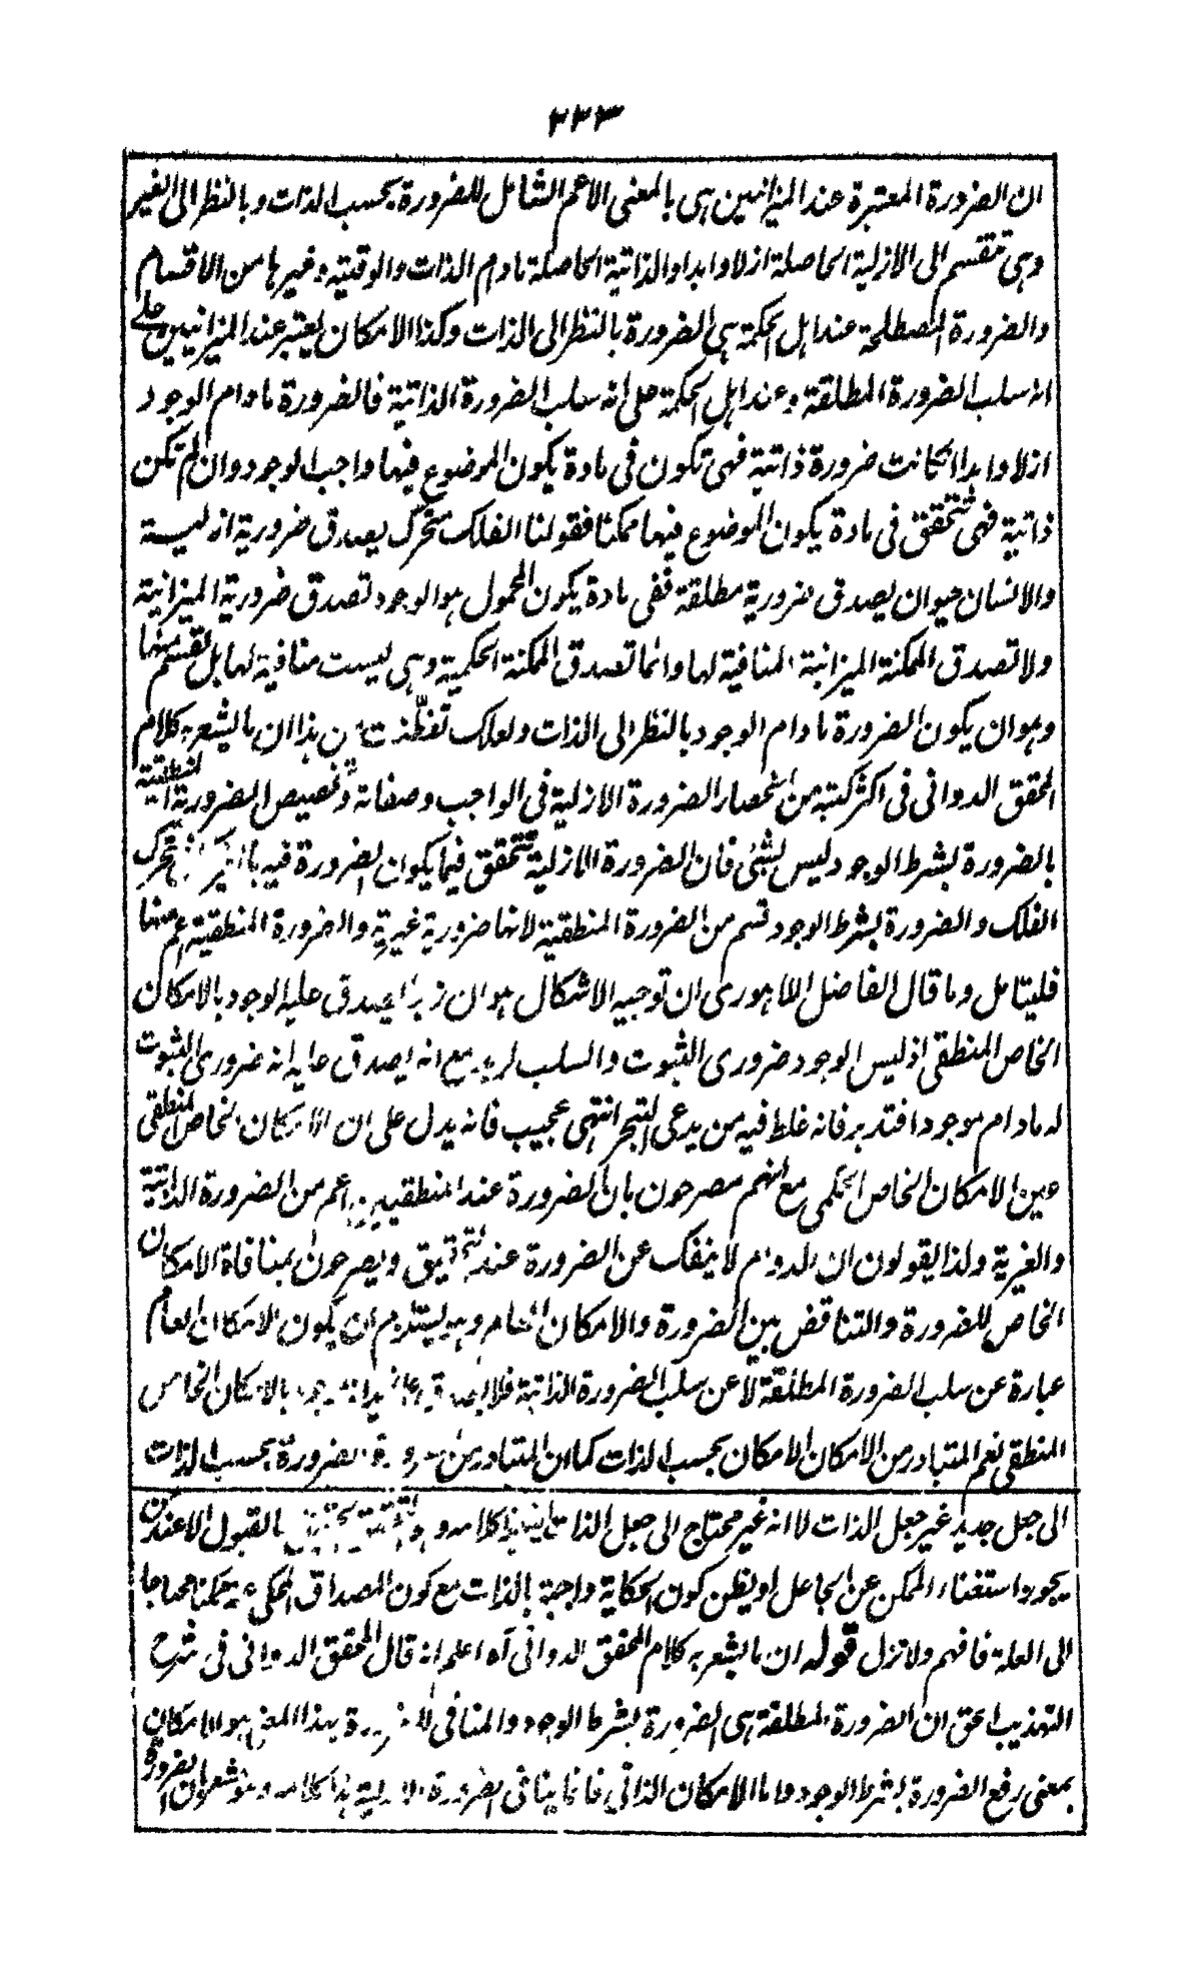 ٢٢٣
ان الضرورة المعتبرة عند الميزانيين هى بالمعنى الاعم الشامل للضرورة بحسب الذات وبالنظر الى الغير
وهى تنقسم الى الازلية الحاصلة ازلا وابدا والذاتية الحاصلة مادام الذات والوقتية وغيرها من الاقسام
والضرورة المصطلحة عند اهل الحكمة هى الضرورة بالنظر الى الذات وكذا الامكان يعتبر عند الميزانيين على
انه سلب الضرورة المطلقة وعند اهل الحكمة على انه سلب الضرورة الذاتية فالضرورة مادام الوجود
ازلا وابدا ان كانت ضرورة ذاتية فهى تكون فى مادة يكون الموضوع فيها واجب الوجود وان لم تكن
ذاتية فهى تتحقق فى مادة يكون الموضوع فيها ممكنا فقولنا الفلك متحرك يصدق ضرورية ازلية
والانسان حيوان يصدق ضرورية مطلقة ففى مادة يكون المحمول هو الوجود تصدق ضرورية الميزانية
ولا تصدق الممكنة الميزانية المنافية لها وانما تصدق الممكنة الحكمية وهى ليست منافية لها بل تقسم منها
وهو ان يكون الضرورة مادام الوجود بالنظر الى الذات ولعلك تفطنت من هذا ان ما يشعر به كلام
المحقق الدوانى فى اكثر كتبه من انحصار الضرورة الازلية فى الواجب وصفاته وتخصيص الضرورية المنطقية
بالضرورة بشرط الوجود ليس بشئ فان الضرورة الازلية تتحقق فيما يكون الضرورة فيه بالغير كتحرك
الفلك والضرورة بشرط الوجود قسم من الضرورة المنطقية لانها ضرورية غيرية والضرورة المنطقية اعم منها
فليتامل وما قال الفاضل اللاهورى ان توجيه الاشكال هو ان زيدا يصدق عليه الوجود بالامكان
الخاص المنطقى اذ ليس الوجود ضرورى الثبوت والسلب لزيد مع انه يصدق عليه انه ضرورى الثبوت
له مادام موجودا فتدبر فانه غلط فيه من يدعى التبحر انتهى عجيب فانه يدل على ان الامكان الخاص المنطقى
عين الامكان الخاص الحكمى مع انهم مصرحون بان الضرورة عند المنطقيين اعم من الضرورة الذاتية
والغيرية ولذا يقولون ان الدوام لا ينفك عن الضرورة عند التحقيق ويصرحون بمنافاة الامكان
الخاص للضرورة والتناقض بين الضرورة والامكان العام وهو يستلزم ان يكون الامكان العام
عبارة عن سلب الضرورة المطلقة لا عن سلب الضرورة الذاتية فلا يصدق على زيد انه موجود بالامكان الخاص
المنطقى نعم المتبادر من الامكان الامكان بحسب الذات كما ان المتبادر من الضرورة الضرورة بحسب الذات
الى جعل جديد غير جعل الذات لا انه غير محتاج الى جعل الذات ايضا كلامه بالقبول الا عند من
يجوز استغناء الممكن عن الجاعل او يظن كون الحكاية واجبة بالذات مع كون المصداق المحكى عنه ممكنا محتاجا
الى العلة فافهم ولا تزل قوله ان ما يشعر به كلام المحقق الدوانى آه اعلم انه قال المحقق الدوانى فى شرح
التهذيب الحق ان الضرورة المطلقة هى الضرورة بشرط الوجود والمنافى للضرورة بهذا المعنى هو الامكان
بمعنى رفع الضرورة بشرط الوجود واما الامكان الذاتى فانما ينافى الضرورة الازلية هذا كلامه وهو مشعر بان الضرورة